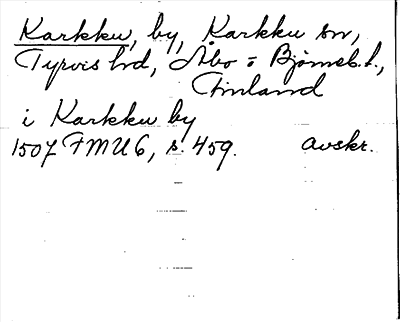 Karkku, by, Karkku sn,
Tyrvis hd, Åbo o Björneb. l.,
Finland
i Karkku by
1507 FMU 6, s. 459. avskr.